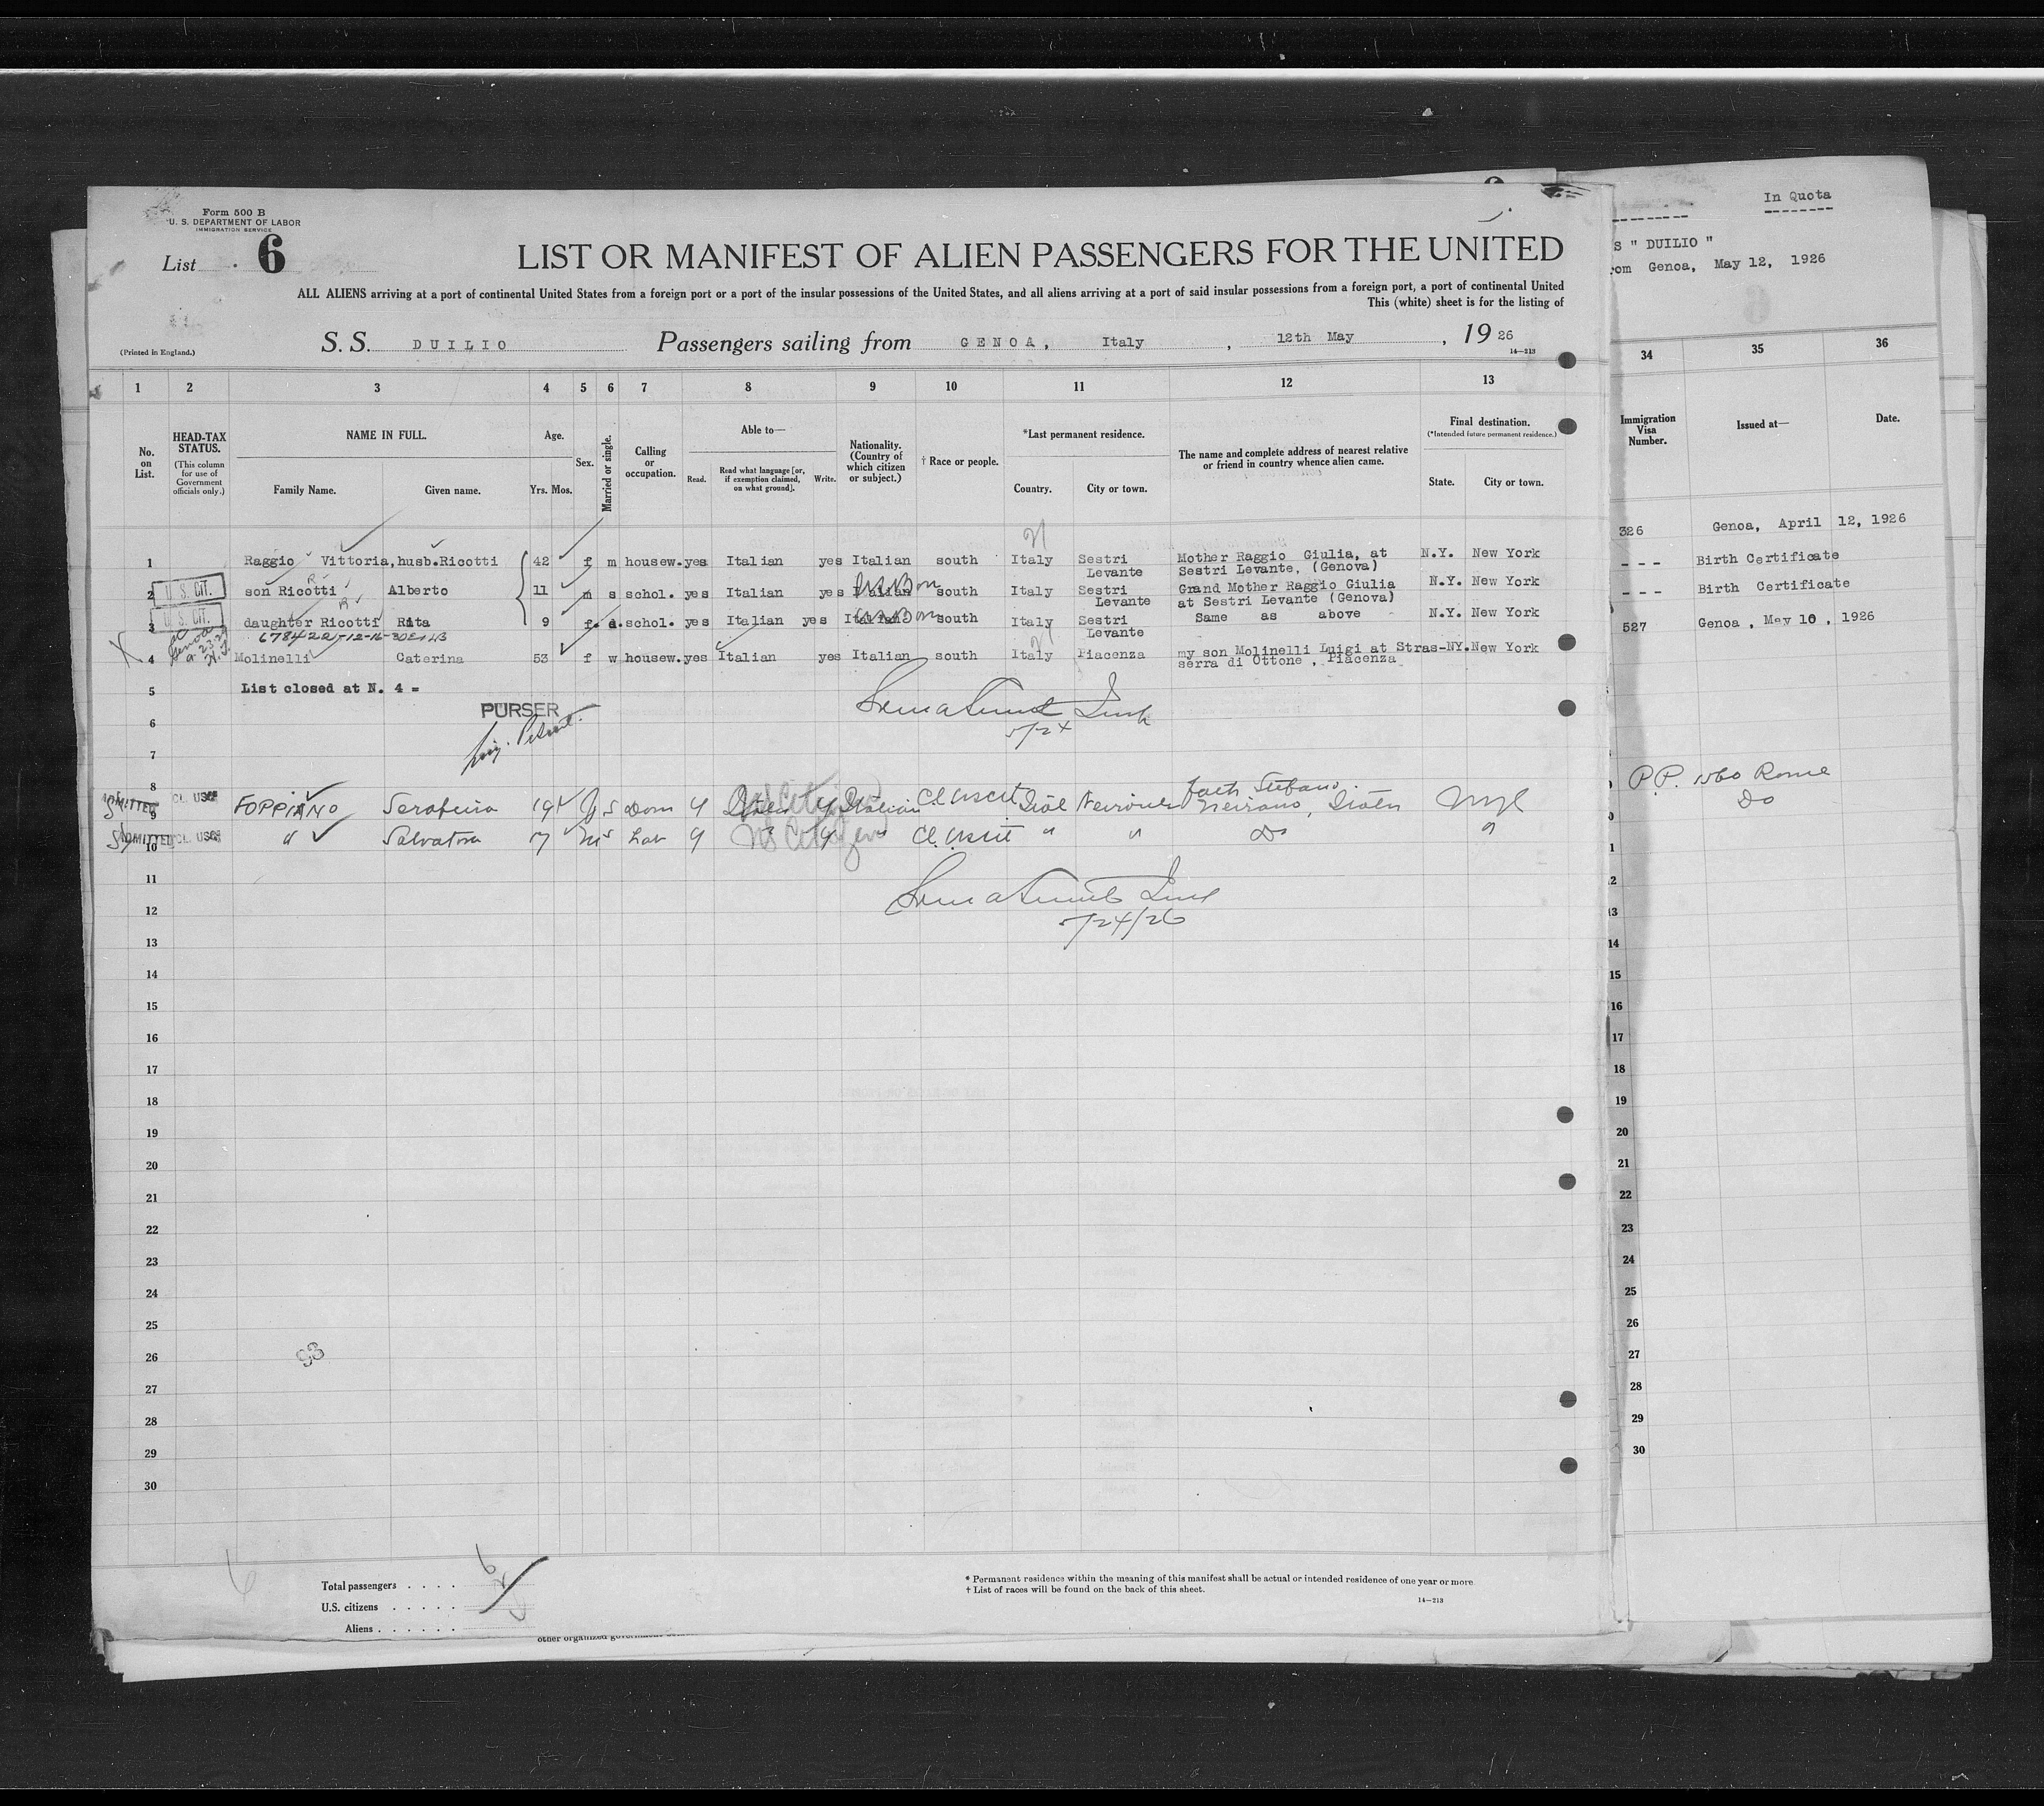 In Quota
S " DUILIO "
rom Genoa, May 12, 1926
Form 500 B
U. S. DEPARTMENT OF LABOR
IMMIGRATION SERVICE
List 6
LIST OR MANIFEST OF ALIEN PASSENGERS FOR THE UNITED
ALL ALIENS arriving at a port of continental United States from a foreign port or a port of the insular possessions of the United States, and all aliens arriving at a port of said insular possessions from a foreign port, a port of continental United
This (white) sheet is for the listing of
(Printed in England.)
S. S. DUILIO Passengers sailing from GENOA, Italy , 12th May , 19 26
14—213
1 2 3 4 5 6 7 8 9 10 11 12 13 34 35 36
No. on List.
HEAD-TAX STATUS.
(This column for use of Government officials only.)
NAME IN FULL.
Family Name. Given name.
Age.
Yrs. Mos.
Sex.
Married or single.
Calling or occupation.
Able to—
Read. Read what language [or, if exemption claimed, on what ground]. Write.
Nationality. (Country of which citizen or subject.)
† Race or people.
*Last permanent residence.
Country. City or town.
The name and complete address of nearest relative or friend in country whence alien came.
Final destination.
(*Intended future permanent residence.)
State. City or town.
Immigration Visa Number.
Issued at—
Date.
1 Raggio Vittoria, husb.Ricotti 42 f m housew. yes Italian yes Italian south Italy Sestri Levante Mother Raggio Giulia, at Sestri Levante, (Genova) N.Y. New York
326 Genoa, April 12, 1926
2 U. S. CIT. son Ricotti Alberto 11 m s schol. yes Italian yes Italian south Italy Sestri Levante Grand Mother Raggio Giulia at Sestri Levante (Genova) N.Y. New York
- - - Birth Certificate
3 U. S. CIT. daughter Ricotti Rita 9 f. s. schol. yes Italian yes Italian south Italy Sestri Levante Same as above N.Y. New York
- - - Birth Certificate
4 Molinelli Caterina 53 f w housew. yes Italian yes Italian south Italy Piacenza my son Molinelli Luigi at Stras- serra di Ottone , Piacenza NY. New York
527 Genoa , May 10 , 1926
5 List closed at N. 4 =
PURSER
5/24
6
7
8
9 ADMITTED FOPPIANO Serafina 19 f s Dom y Italian y Italian Neirone fath Stefano N Y C
P.P. 1560 Rome
10 ADMITTED " Salvatore 17 m s Lab y y " " " Do "
Do
11
12
5/24/26
13
14
15
16
17
18
19
20
21
22
23
24
25
26
93
27
28
29
30
Total passengers . . . .
U.S. citizens . . . . .
Aliens . . . . . .
* Permanent residence within the meaning of this manifest shall be actual or intended residence of one year or more.
† List of races will be found on the back of this sheet.
14—213